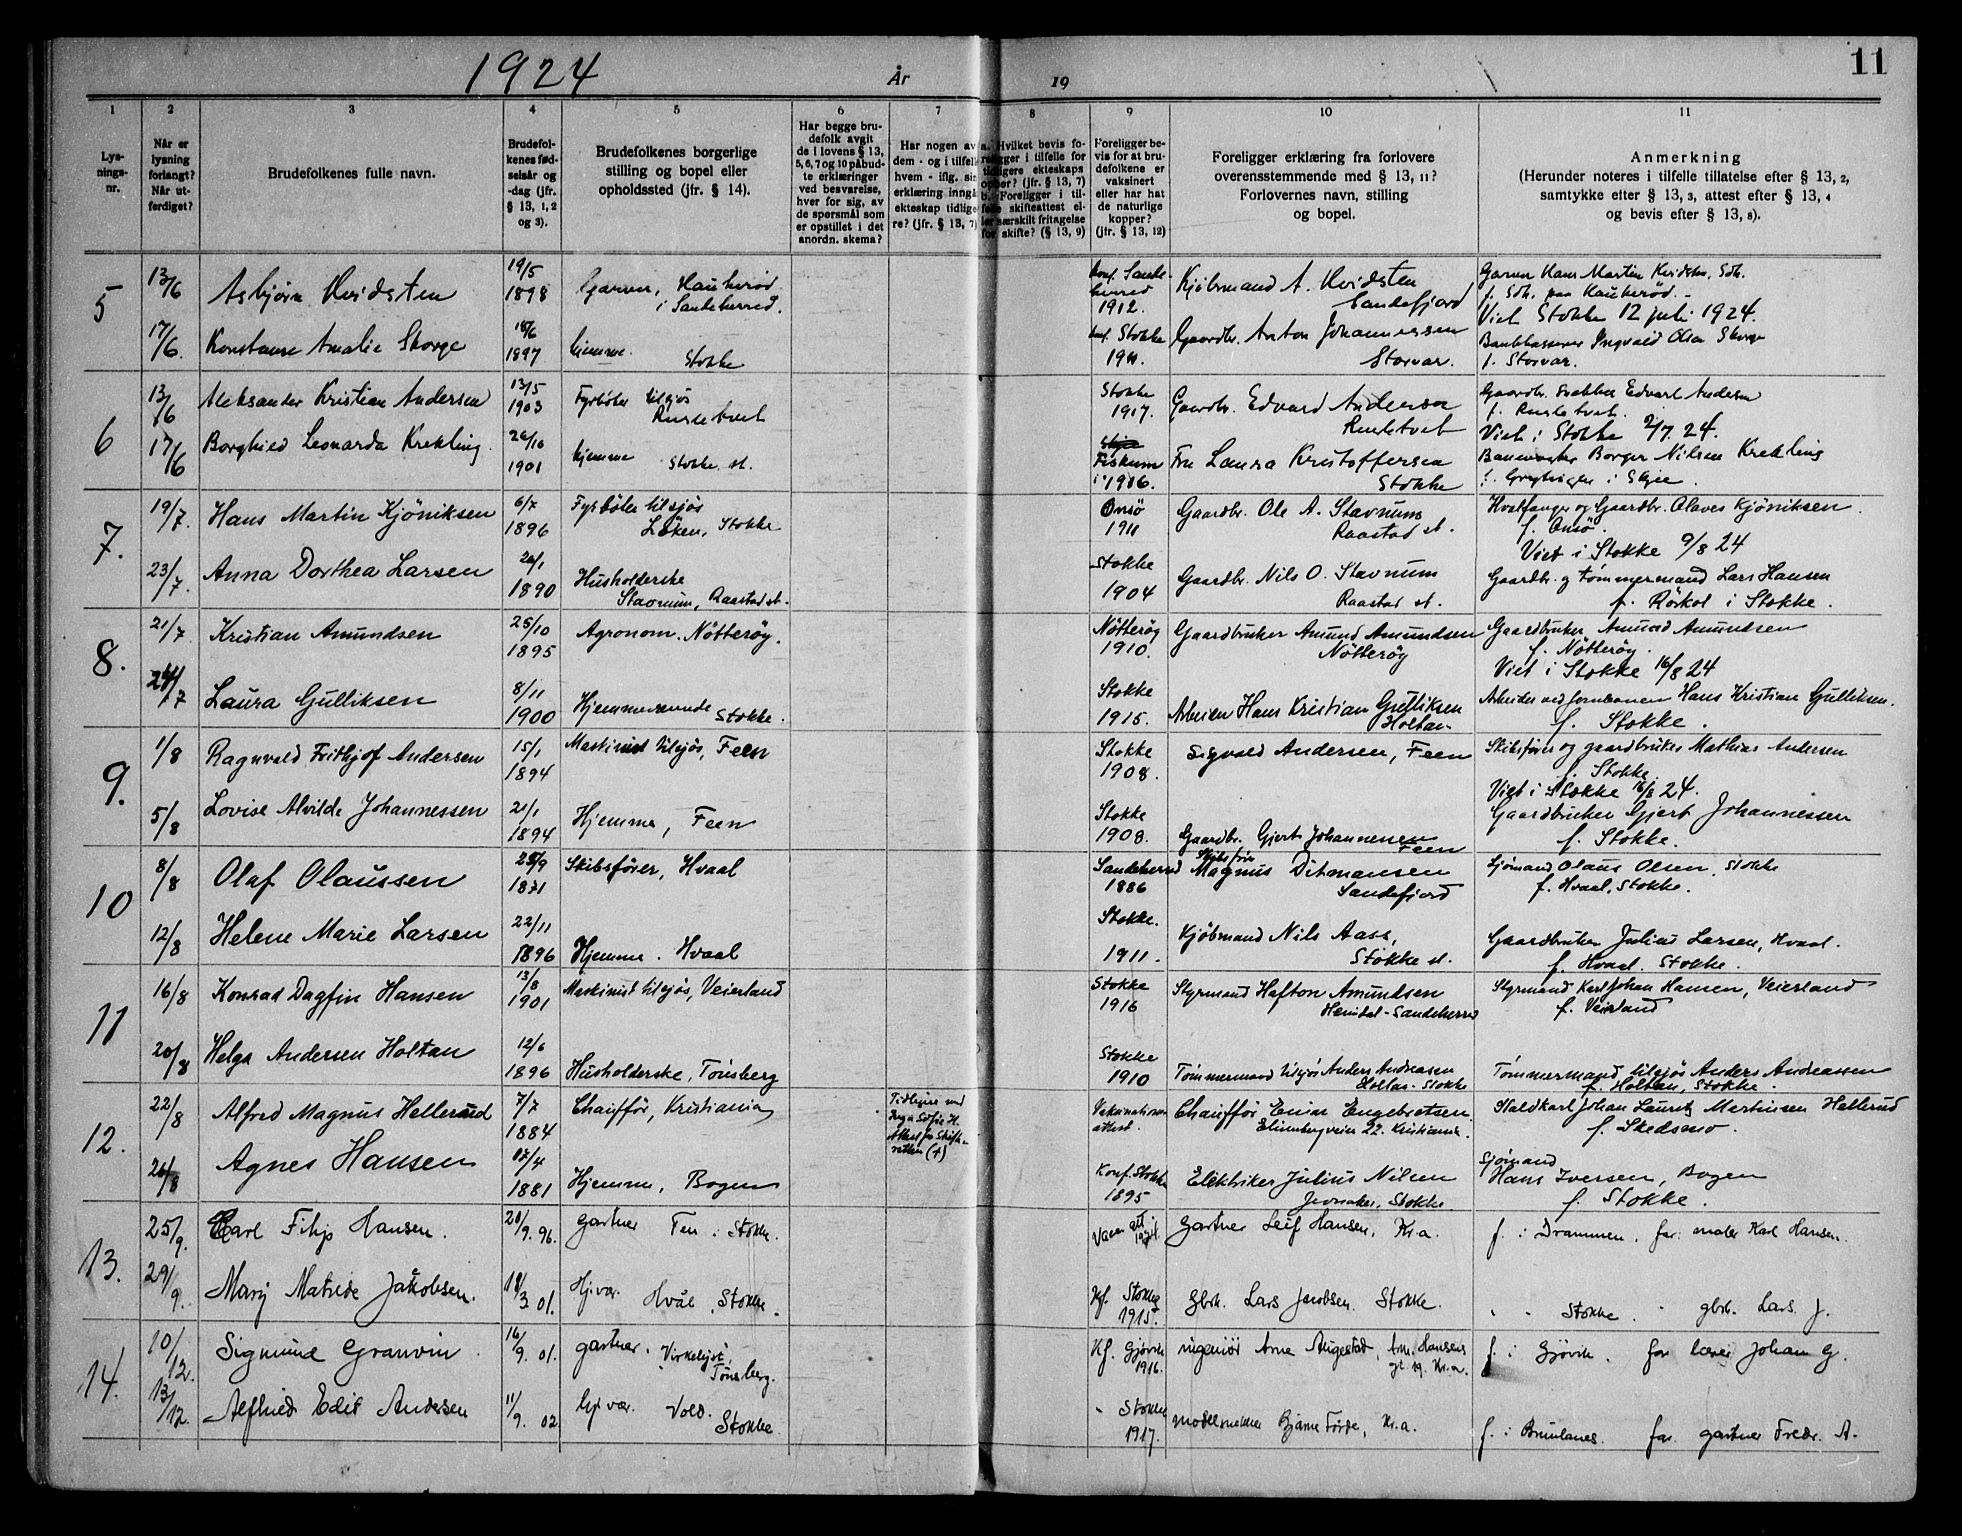 1924
År
19
11
1
2
3
4
5
6
7
8
9
10
11
Lys-
nings-
nr.
Når er
lysning
forlangt?
Når ut-
ferdiget?
Brudefolkenes fulle navn.
Brudefol-
kenes fød-
selsår og
-dag (jfr.
§ 13, 1, 2
og 3).
Brudefolkenes borgerlige
stilling og bopel eller
opholdssted (jfr. § 14).
Har begge bru-
defolk avgit
de i lovens § 13,
5, 6, 7 og 10 påbud-
te erklæringer
ved besvarelse,
hver for sig, av
de spørsmål som
er opstillet i det
anordn. skema?
Har nogen av
dem - og i tilfelle
hvem - iflg. sin
erklæring inngå
ekteskap tidlige-
re? (jfr. § 13, 7)
a. Hvilket bevis fo-
religger i tilfelle for
tidligere ekteskaps
ophør? (jfr. § 13, 7)
b. Foreligger i til-
felle skifteattest el-
ler særskilt fritagelse
for skifte? (§ 13, 9)
Foreligger be-
vis for at bru-
defolkene er
vaksinert
eller har hat
de naturlige
kopper?
(jfr. § 13, 12)
Foreligger erklæring fra forlovere
overensstemmende med § 13, 11?
Forlovernes navn, stilling
og bopel.
Anmerkning
(Herunder noteres i tilfelle tillatelse efter § 13, 2,
samtykke efter § 13, 3, attest efter § 13, 4
og bevis efter § 13, 8).
5
13/6
Asbjörn Hvidsten
19/5
1898
Garver, Haukerød
i Sandeherred.
Konf. Sande-
herred
1912.
Kjöbmand A. Hvidsten
Sandefjord
Garver Hans Martin Hvidsten, Sdh.
f. Sdh. paa Haukerød. -
Viet Stokke 12 juli 1924.
17/6.
Konstanse Amalie Skorge
18/6
1897
hjemme.
Stokke
Konf. Stokke
1911.
Gaardbr. Anton Johannessen
Storvar.
Bankkasserer Ingvald Olsen Skorge
f. Storvar.
6
13/6
Aleksander Kristian Andersen
13/5
1903
Fyrböter tilsjös
Rusletvet
Stokke
1917.
Gaardbr. Edvard Andersen
Rusletvet
Gaardbr. Edvart Andersen
f. Rusletvet.
Viet i Stokke 2/7 24.
17/6
Borghild Leonarda Krekling.
26/10
1901
hjemme
Stokke st.
Fiskum
i 1916.
Fru Laura Kristoffersen
Stokke
Banevogter Borger Nilsen Krekling
i Skjee.
7.
19/7.
Hans Martin Kjöniksen
6/7
1896
Fyrböter tilsjös
Löken, Stokke
Onsö
1911
Gaardbr. Ole A. Stavnum
Raastad st.
Hvalfanger og Gaardbr. Olaves Kjöniksen.
f. Onsö
Viet i Stokke 9/8 24
23/7.
Anna Dorthea Larsen
26/1
1890
Husholderske
Stavnum, Raastad st.
Stokke
1904
Gaardbr. Nils O. Stavnum
Raastad st.
Gaardbr. og tömmermand Lars Hansen
f. Röskol i Stokke.
8.
21/7.
Kristian Amundsen
25/10
1895
Agronom. Nötteröy.
Nötteröy
1910.
Gaardbruker Amund Amundsen
Nötteröy
Gaardbruker Amund Amundsen
f. Nötteröy.
Viet i Stokke 16/8 24
24/7
Laura Gulliksen
8/11
1900
Hjemmeværende
Stokke.
Stokke
1915.
Arbeider Hans Kristian Gulliksen
Holtan
Arbeider ved jernbanen Hans Kristian Gulliksen.
f. Stokke.
9.
1/8
Ragnvald Fridtjof Andersen
15/1
1894
Maskinist tilsjös, Feen
Stokke
1908.
Sigvald Andersen, Feen
Skibsförer og gaardbruker Mathias Andersen
f. Stokke
Viet i Stokke 16/8 24.
5/8
Lovise Alvilde Johannessen
21/1
1894
Hjemme, Feen
Stokke
1908.
Gaardbr. Gjert Johannesen
Feen
Gaardbruker Gjert Johannessen
f. Stokke.
10
8/8
Olaf Olaussen
25/9
1871
Skibsfører, Hvaal
Sandeherred
1886
Skibsfører
Magnus Ditmansen
Sandefjord
Sjømand Olaus Olsen, Stokke
f. Hvaal, Stokke.
12/8
Helene Marie Larsen
22/11
1896
Hjemme. Hvaal
Stokke.
1911.
Kjöbmand Nils Aass,
Stokke st.
Gaardbruker Julius Larsen, Hvaal.
f. Hvaal. Stokke.
11
16/8
Konrad Dagfin Hansen
13/8
1901
Maskinist tilsjøs, Veierland
Stokke
1916
Styrmand Hafton Amundsen
Hemdal - Sandeherred
Styrmand Karl Johan Hansen, Veierland
f. Veierland
20/8
Helga Andersen Holtan
12/6
1896
Husholderske, Tønsberg
Stokke
1910
Tømmermand tilsjøs Anders Andreassen
Holtan - Stokke
Tømmermand tilsjøs Anders Andreassen
f. Holtan, Stokke.
12.
22/8
Alfred Magnus Hellerud
7/7
1884
Chaufför, Kristiania
Tidligere med
Inga Sofie H.
Attest fra Skifte-
retten (+)
Vaksinations
attest.
Chauffør Einar Engebretsen
Elisenbergveien 22. Kristiania.
Staldkarl Johan Lauritz Martinsen Hellerud
f. Skedsmo.
26/8
Agnes Hansen
17/4
1881
Hjemme, Bogen
Konf. Stokke
1895
Elektriker Julius Nilsen
Jevnaker, Stokke
Sjømand
Hans Iversen, Bogen
f. Stokke.
13.
25/9.
Carl Filip Hansen.
20/9. 96.
gartner Fen i Stokke.
Vaccn att.
gartner Leif Hansen, Kr.a.
f. i Drammen. far: maler Karl Hansen.
29/9.
Marij Matilde Jakobsen.
18/3 01.
Hj. vær.
Hvål, Stokke.
Kf. Stokke
1915.
Gbrk. Lars Jacobsen. Stokke.
" " Stokke " gbrk. Lars J.
14.
10/12.
Sigmund Granvin.
16/9. 01.
gartner. Virkelyst,
Tönsberg.
Kf. Gjövik
1916.
ingeniör Arne Augestad, Arn. Hansens
gt. 19. Kr.a.
f. i Gjövik. far lærer Johan G.
13/12.
Alfhild Edit Andersen
11/9. 02
Hj. vær. Vold.
Stokke
" Stokke
1917.
modelsnekker Bjarne Förde, Kr.a.
f. i Brunlanes. far. gartner Fredr. A.